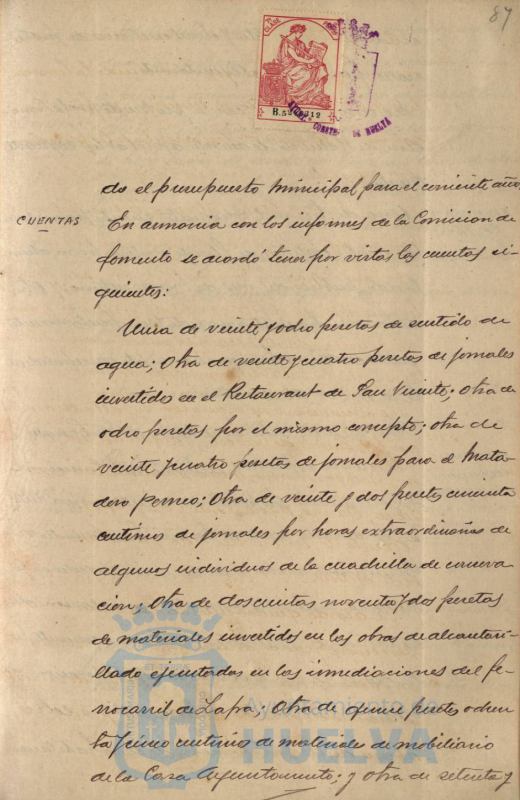 87
11ª CLASE
B.5
312
AYUNT. CONSTL. DE HUELVA
do el presupuesto Municipal para el corriente año.
CUENTAS
En armonia con los informes de la Comision de
fomento se acordó tener por vistas las cuentas si-
guientes:
Una de veinte y odro pesetas de surtido de
agua; Otra de veinte y cuatro pesetas de jornales
invertidos en el Restaurant de San Vicente; Otra de
odro pesetas por el mismo concepto; otra de
veinte y cuatro pesetas de jornales para el Mata-
dero Perneo; Otra de veinte y dos pesetas cincuenta
centimos de jornales por horas extraordinarias de
algunos individuos de la cuadrilla de conserva-
cion; Otra de doscientas noventa y dos pesetas
de materiales invertidos en las obras de alcantari-
llado ejecutadas en las inmediaciones del fe-
rrocarril de Zafra; Otra de quince pesetas ochen-
ta y cinco centimos de materiales de mobiliario
de la Casa Ayuntamiento; y otra de setenta y
Ayuntamiento de
HUELVA